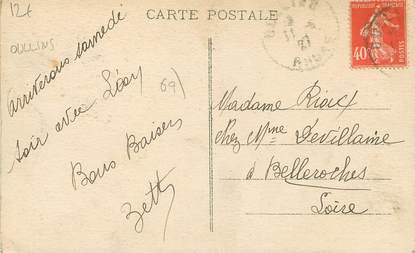 12€
OULLINS
CARTE POSTALE
RHONE
RÉPUBLIQUE FRANÇAISE
40c
POSTES
arriverons samedi
soir avec Léon
69)
Bons Baisers
Zett
Madame Rioux
Chez Mme Devillaine
à Belleroches
Loire